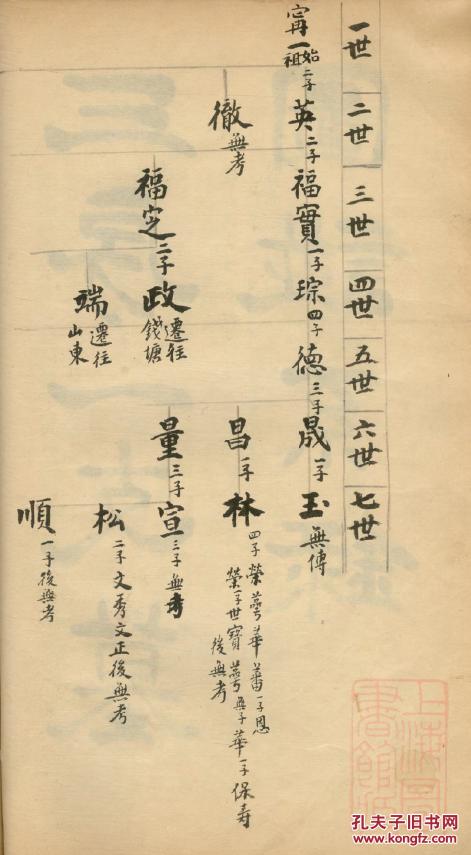 一世
二世
三世
四世
五世
六世
七世
甯一始祖二子
英二子
福實一子
琮四子
德三子
晟一子
玉無傳
徹無考
昌一子
林四子榮蕚華蕃一子恩
榮一子世寶蕚無子華一子保壽
後無考
福芝二子
政遷往錢塘
量三子
宣三子無考
端遷往山東
松二子文秀文正後無考
順一子後無考
上海圖書館藏
孔夫子旧书网
www.kongfz.com